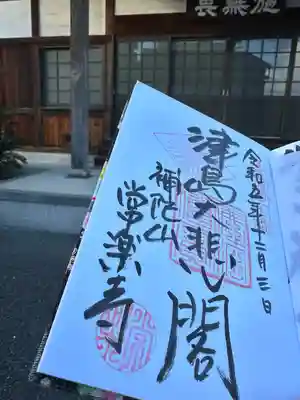 施無畏
令和五年十二月三日
津島大悲閣
補陀山
常楽寺